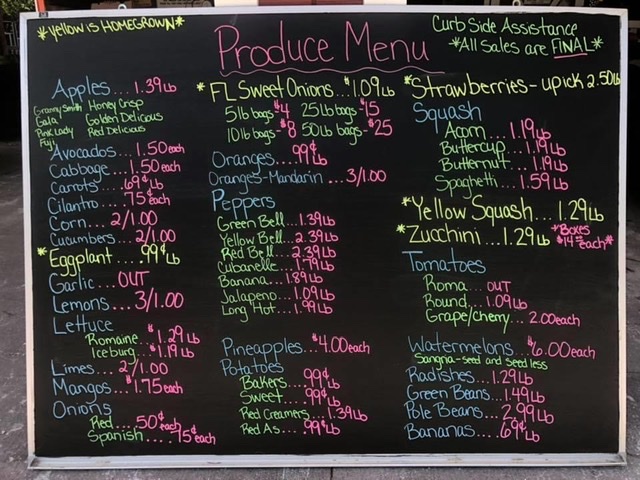 *Yellow is HOMEGROWN*
Produce Menu
Curb Side Assistance
*All Sales are FINAL*
Apples... 1.39 Lb
Granny Smith Honey Crisp
Gala Golden Delicious
Pink Lady Red Delicious
Fuji
Avocados... 1.50 each
Cabbage... 1.50 each
Carrots... .69¢ Lb
Cilantro... .75¢ each
Corn... 2/1.00
Cucumbers... 2/1.00
*Eggplant.... .99¢ Lb
Garlic... OUT
Lemons... 3/1.00
Lettuce
Romaine... $1.29 Lb
Iceburg... $1.19 Lb
Limes... 2/1.00
Mangos... $1.75 each
Onions
Red.... 50¢ each
Spanish.... .75¢ each
*FL Sweet Onions... $1.09 Lb
5lb bags-$4 25Lb bags-$15
10lb bags-$8 50Lb bags-$25
Oranges... .99¢ Lb
Oranges-Mandarin... 3/1.00
Peppers
Green Bell... 1.39 Lb
Yellow Bell... 2.39 Lb
Red Bell... 2.39 Lb
Cubanelle... 1.79 Lb
Banana... 1.89 Lb
Jalapeno... 1.09 Lb
Long Hot... 1.99 Lb
Pineapples... $4.00 each
Potatoes
Bakers... .99¢ Lb
Sweet... .99¢ Lb
Red Creamers... 1.39 Lb
Red As... .99¢ Lb
*Strawberries - upick 2.50 Lb
Squash
Acorn... 1.19 Lb
Buttercup... 1.19 Lb
Butternut... 1.19 Lb
Spaghetti... 1.59 Lb
*Yellow Squash... 1.29 Lb
*Zucchini... 1.29 Lb *Boxes $14.00 each*
Tomatoes
Roma... OUT
Round... 1.09 Lb
Grape/cherry... 2.00 each
Watermelons... $6.00 each
Sangria-seed and seedless
Radishes... 1.29 Lb
Green Beans... 1.49 Lb
Pole Beans... 2.99 Lb
Bananas.... 69¢ Lb